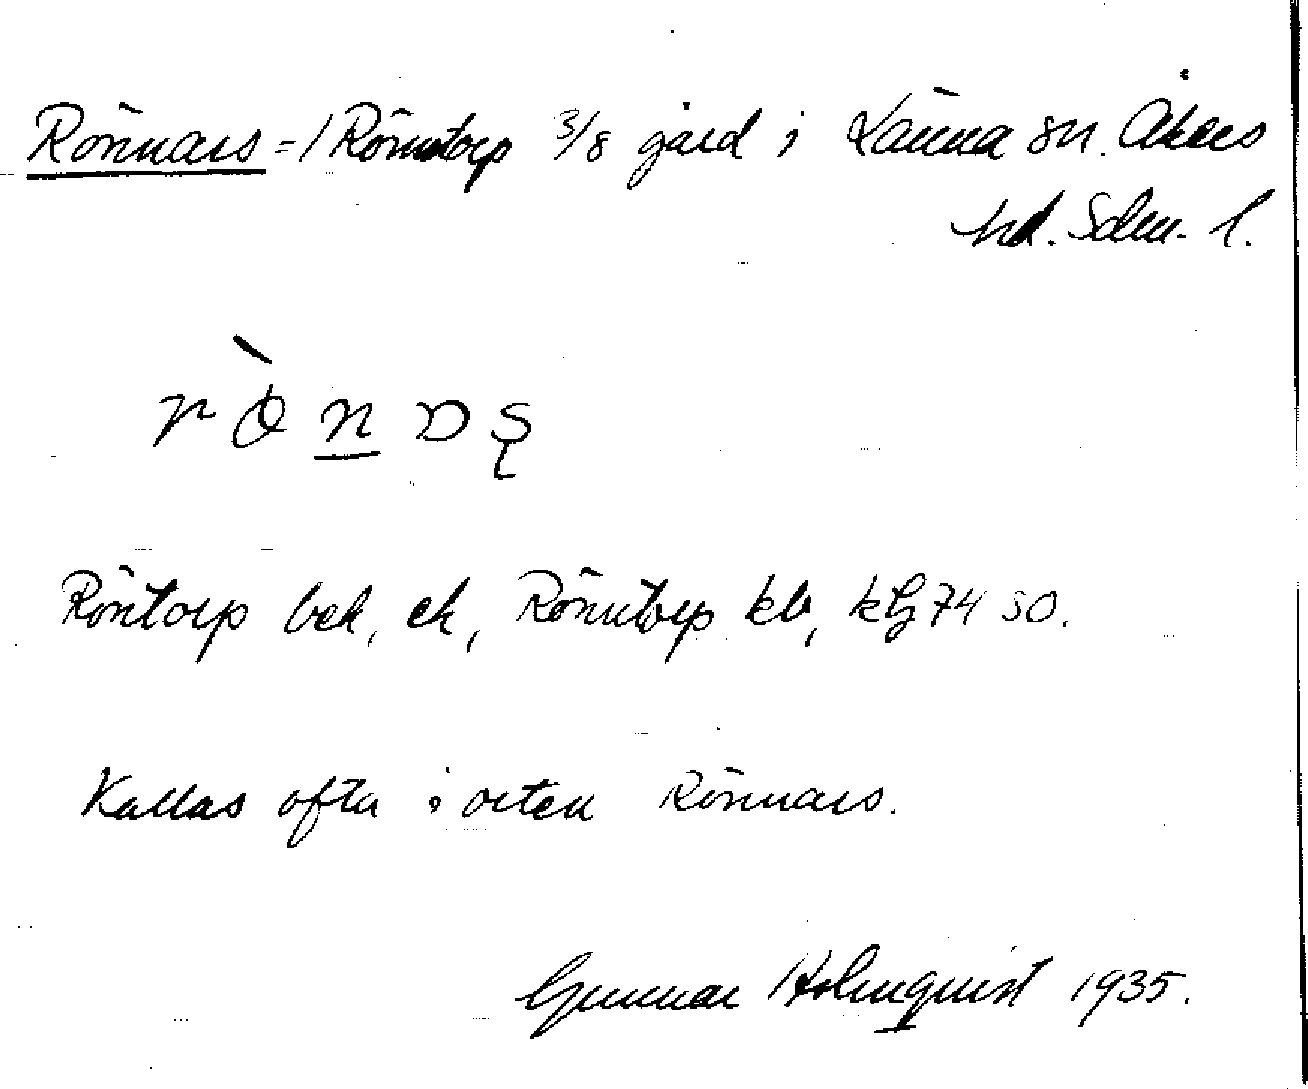 Rönnars =/ Rönntorp 3/8 gård i Länna sn. Åkers
hd. Södm. l.
Röntorp bek, ek, Rönntorp kb, ktg 74 SO.
Kallas ofta i orten Rönnars.
Gunnar Holmquist 1935.